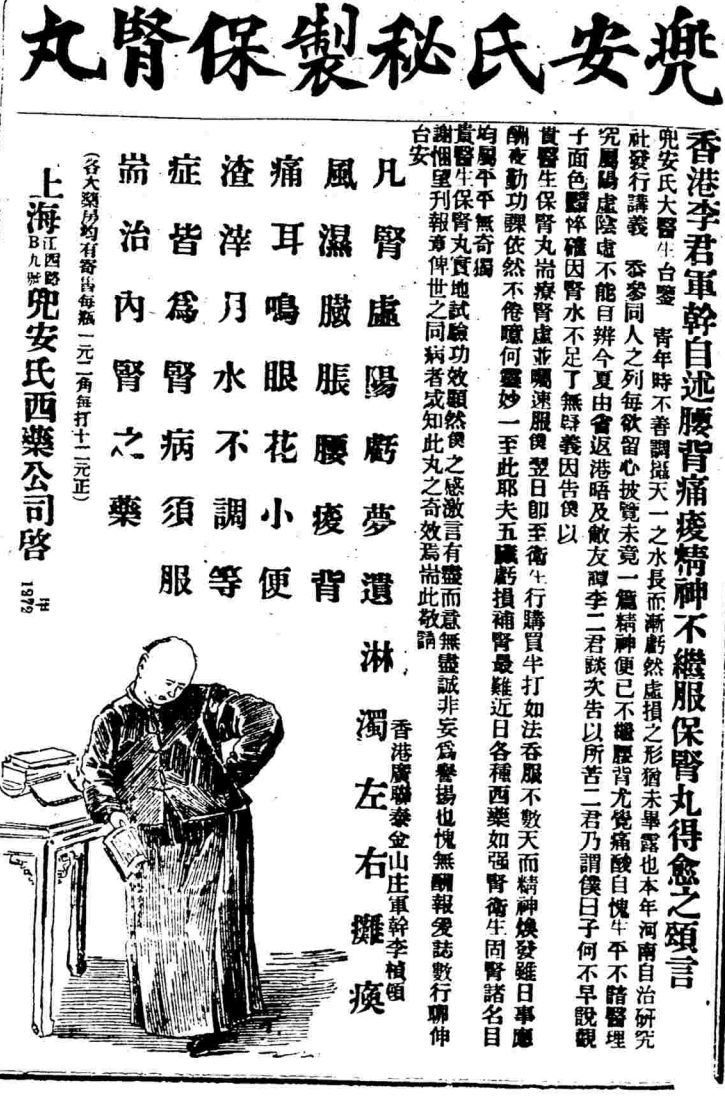 兜安氏秘製保腎丸
香港李君軍幹自述腰背痛痠精神不繼服保腎丸得愈之頌言
兜安氏大醫生台鑒 靑年時不善調攝天一之水長而漸虧然虛損之形猶未畢露也本年河南自治研究
社發行講義 忝參同人之列每欲留心披覽未竟一篇精神便已不繼腰背尤覺痛酸自愧生平不諳醫理
究屬陽虛陰虛不能自辨今夏由省返港晤及敝友譚李二君談次告以所苦二君乃謂僕曰子何不早說觀
子面色醫悴確因腎水不足了無疑義因告僕以
貴醫生保腎丸耑療腎虛並囑速服僕翌日卽至衞生行購買半打如法吞服不數天而精神煥發雖日事應
酬夜勤功課依然不倦噫何靈妙一至此耶夫五臟虧損補腎最難近日各種西藥如强腎衞生固腎諸名目
均屬平平無奇獨
貴醫生保腎丸實地試驗功效顯然僕之感激言有盡而意無盡誠非妄爲譽揚也愧無酬報爰誌數行聊伸
謝悃望刊報章俾世之同病者咸知此丸之奇效焉耑此敬請
台安
香港廣聯泰金山庄軍幹李楨頓
凡腎虛陽虧夢遺淋濁左右攤瘓
風濕臌脹腰痠背
痛耳鳴眼花小便
渣滓月水不調等
症皆爲腎病須服
耑治內腎之藥
(各大藥房均有寄售每瓶一元二角每打十二元正)
上海江西路B九號兜安氏西藥公司啓
甲
1872